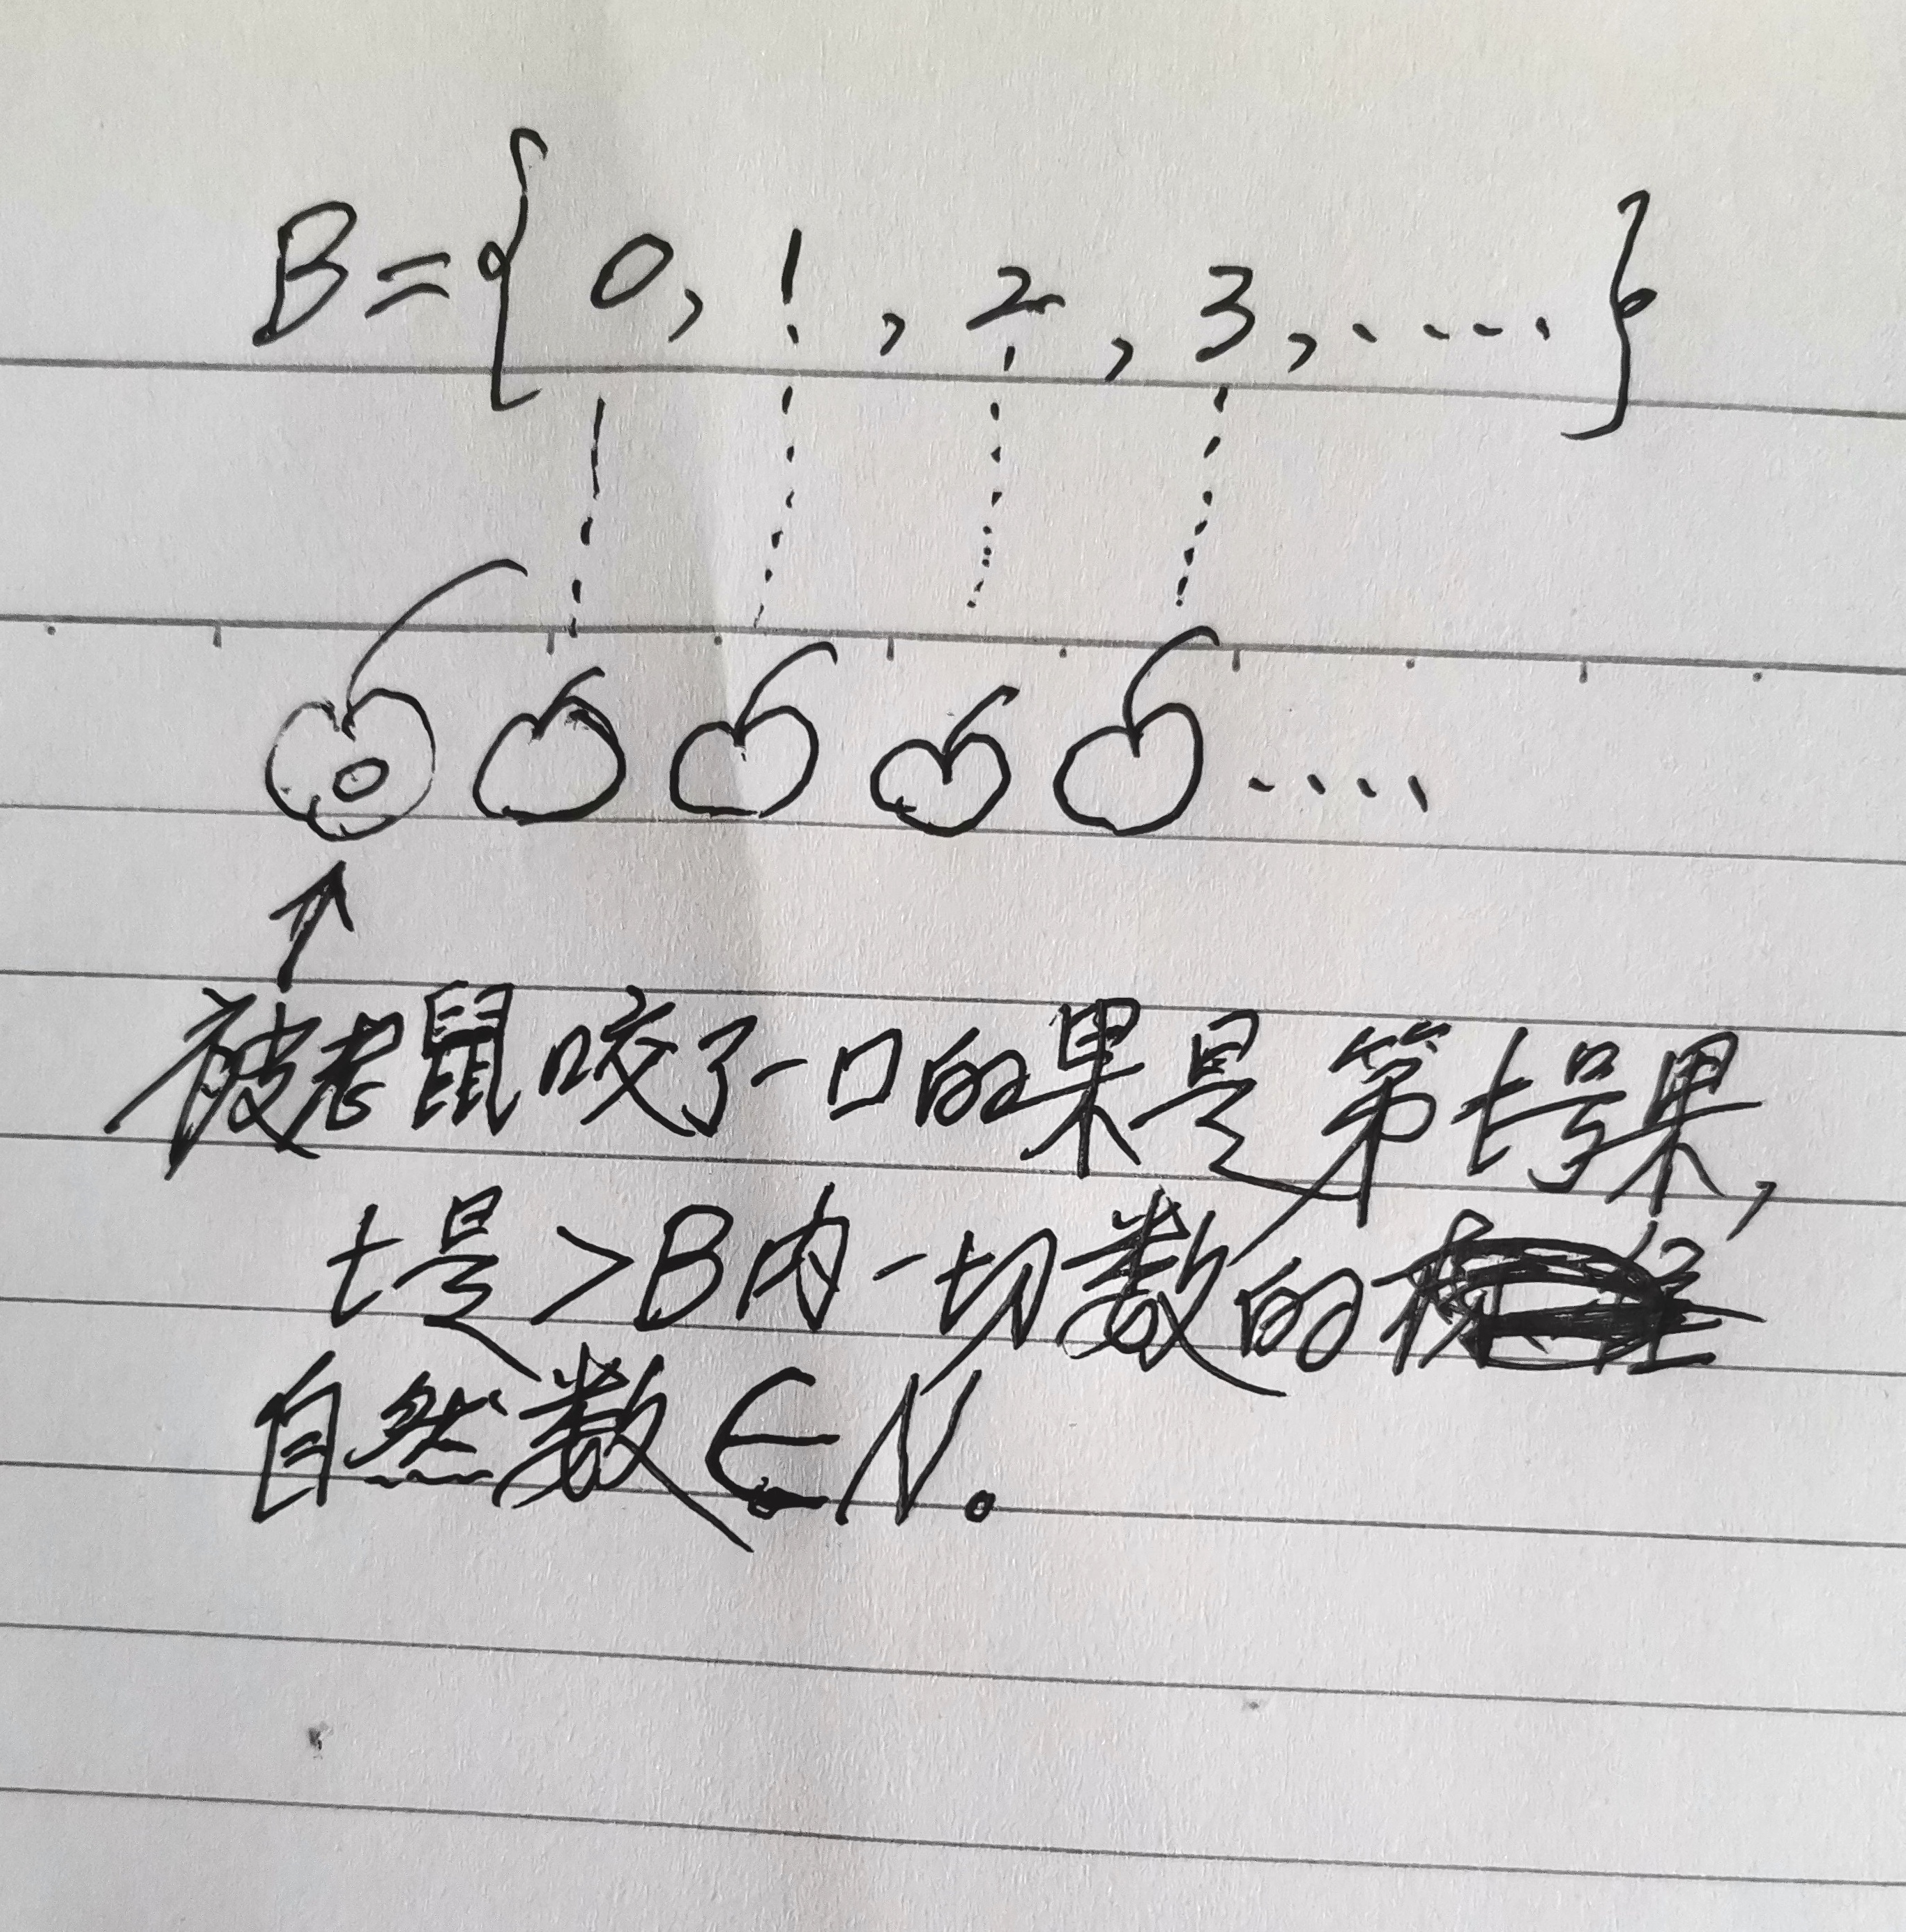 B={0,1,2,3,.....}
被老鼠咬了一口的果是第t号果,
t是>B内一切数的
自然数∈N。